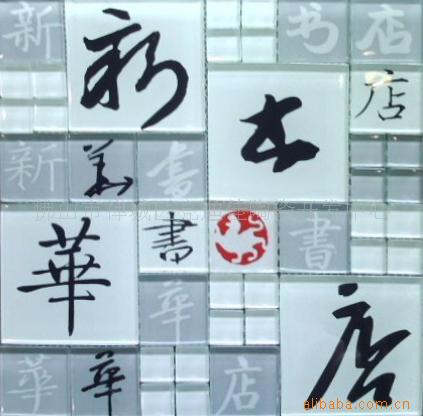 新 新 书 店
书 店
新 華 書
華 書 書
華 店
華 華 店
alibaba.com.cn